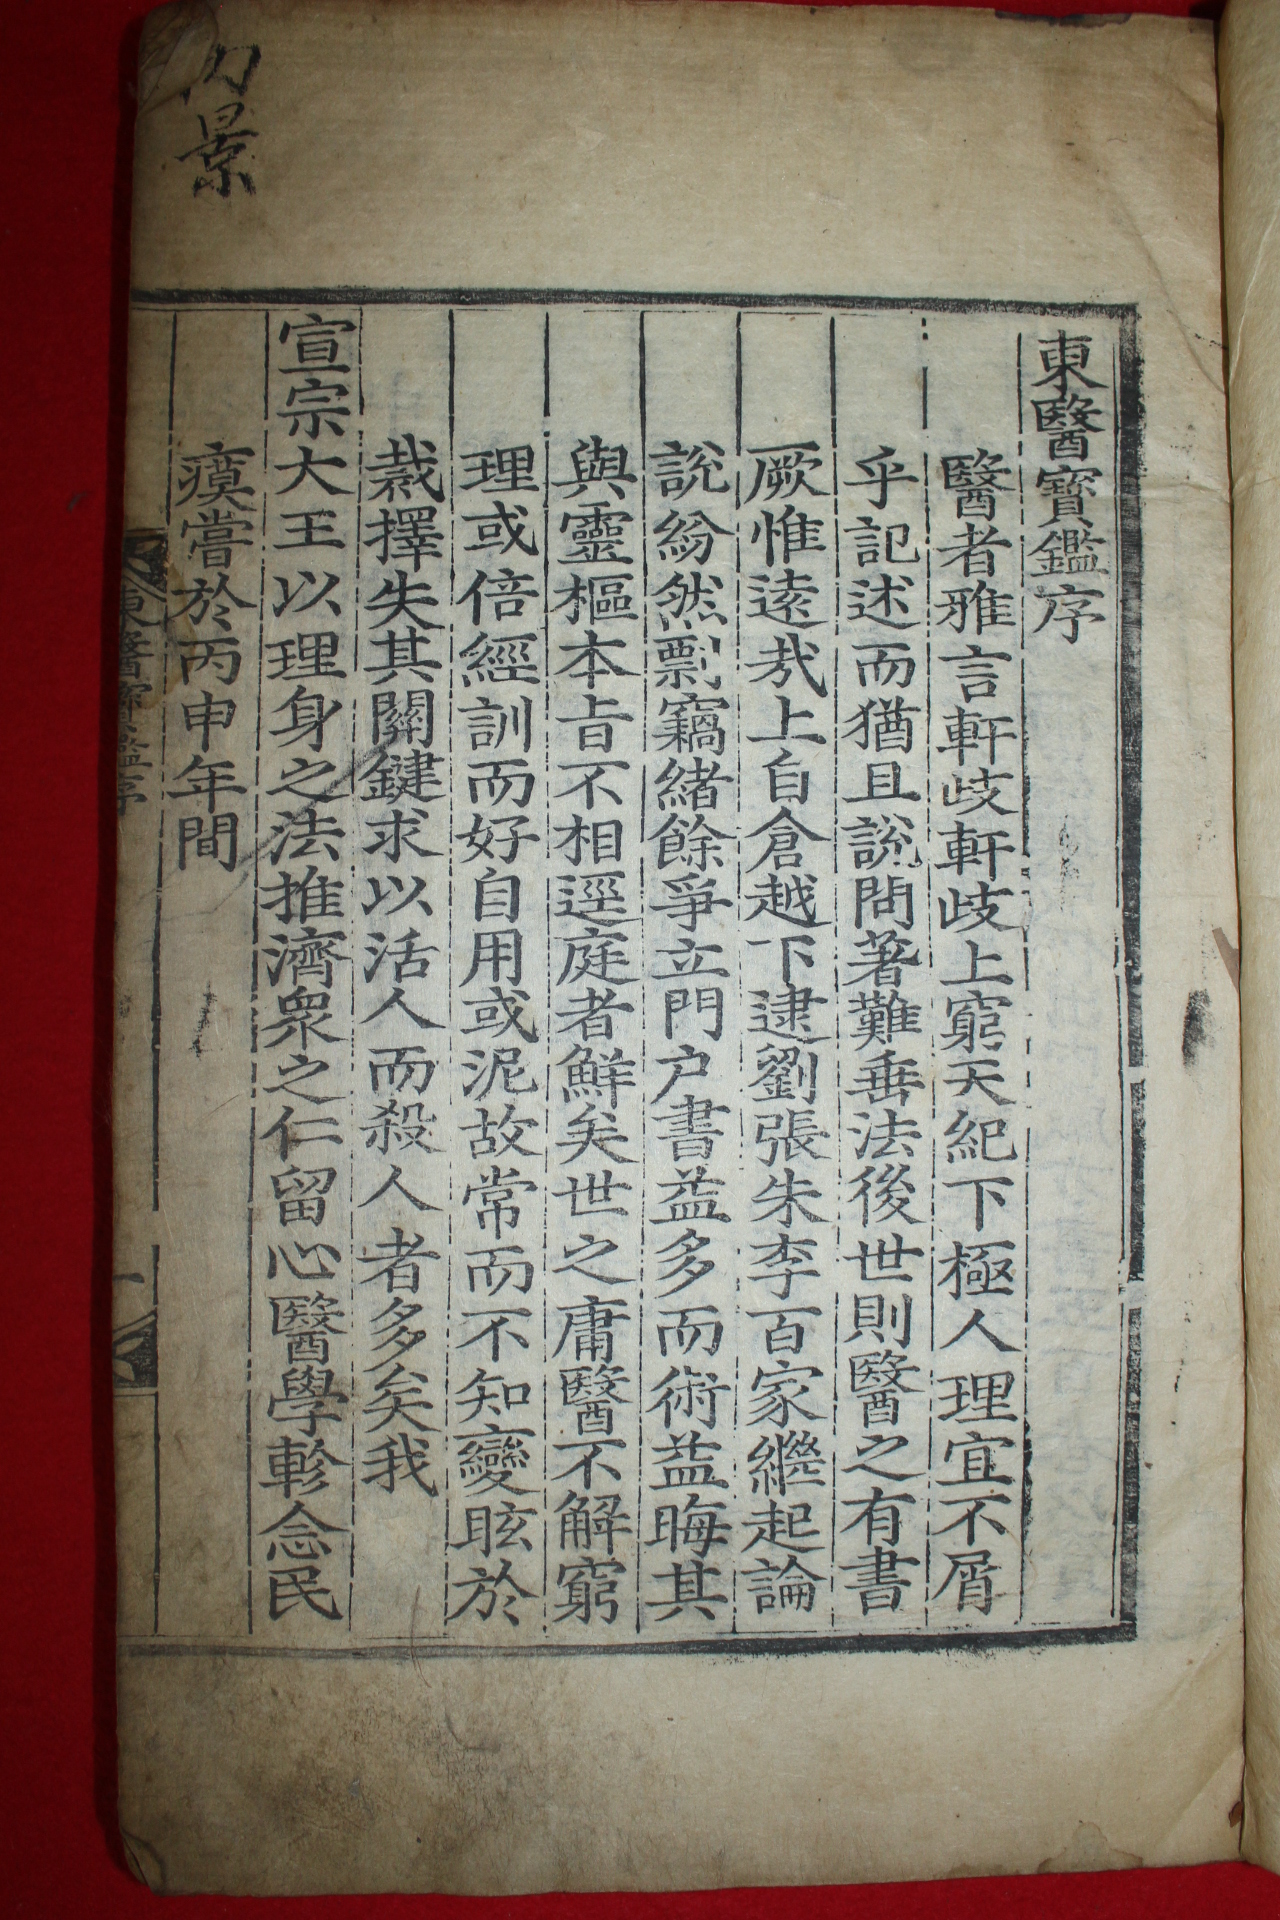 內景
東醫寶鑑序
醫者雅言軒岐軒岐上窮天紀下極人理宜不屑
乎記述而猶且說問著難垂法後世則醫之有書
厥惟遠哉上自倉越下逮劉張朱李百家繼起論
說紛然剽竊緖餘爭立門户書益多而術益晦其
與靈樞本旨不相逕庭者鮮矣世之庸醫不解窮
理或倍經訓而好自用或泥故常而不知變眩於
裁擇失其關鍵求以活人而殺人者多矣我
宣宗大王以理身之法推濟衆之仁留心醫學軫念民
瘼嘗於丙申年間
東醫寶鑑序
一